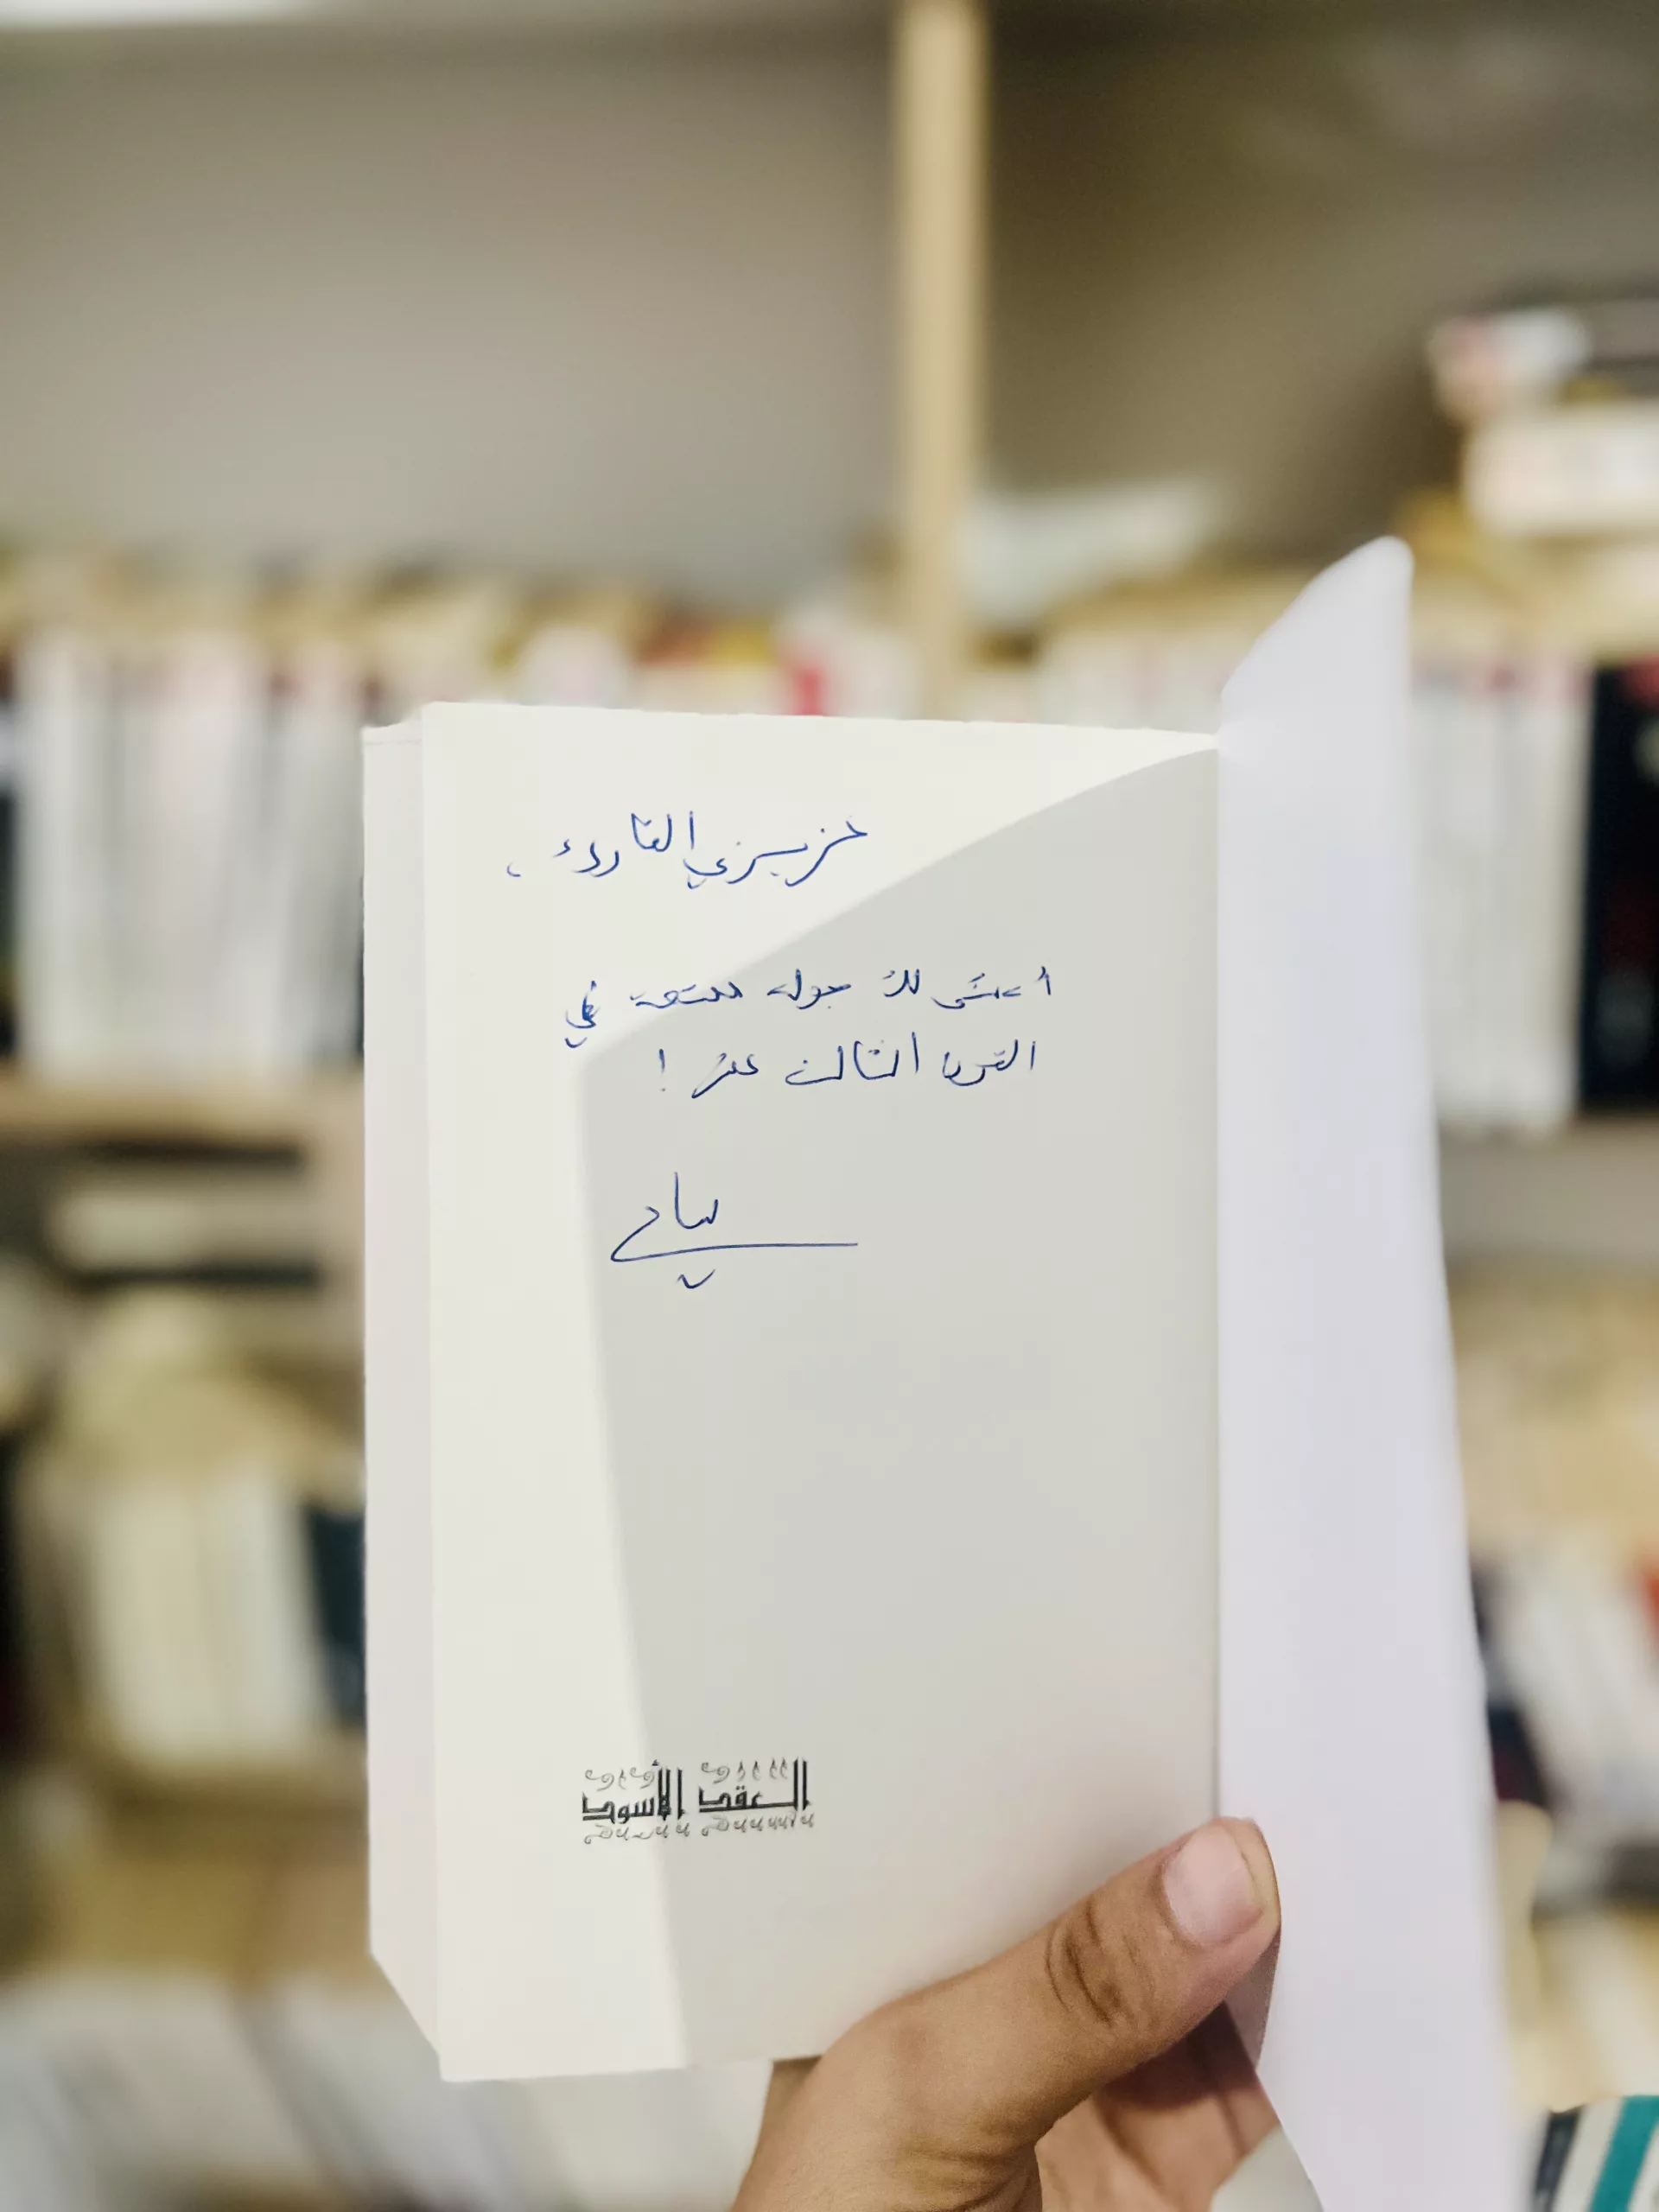 عزيزي القارئ،
أتمنى لك جولة ممتعة في
القرن الثالث عشر!
العقد الأسود